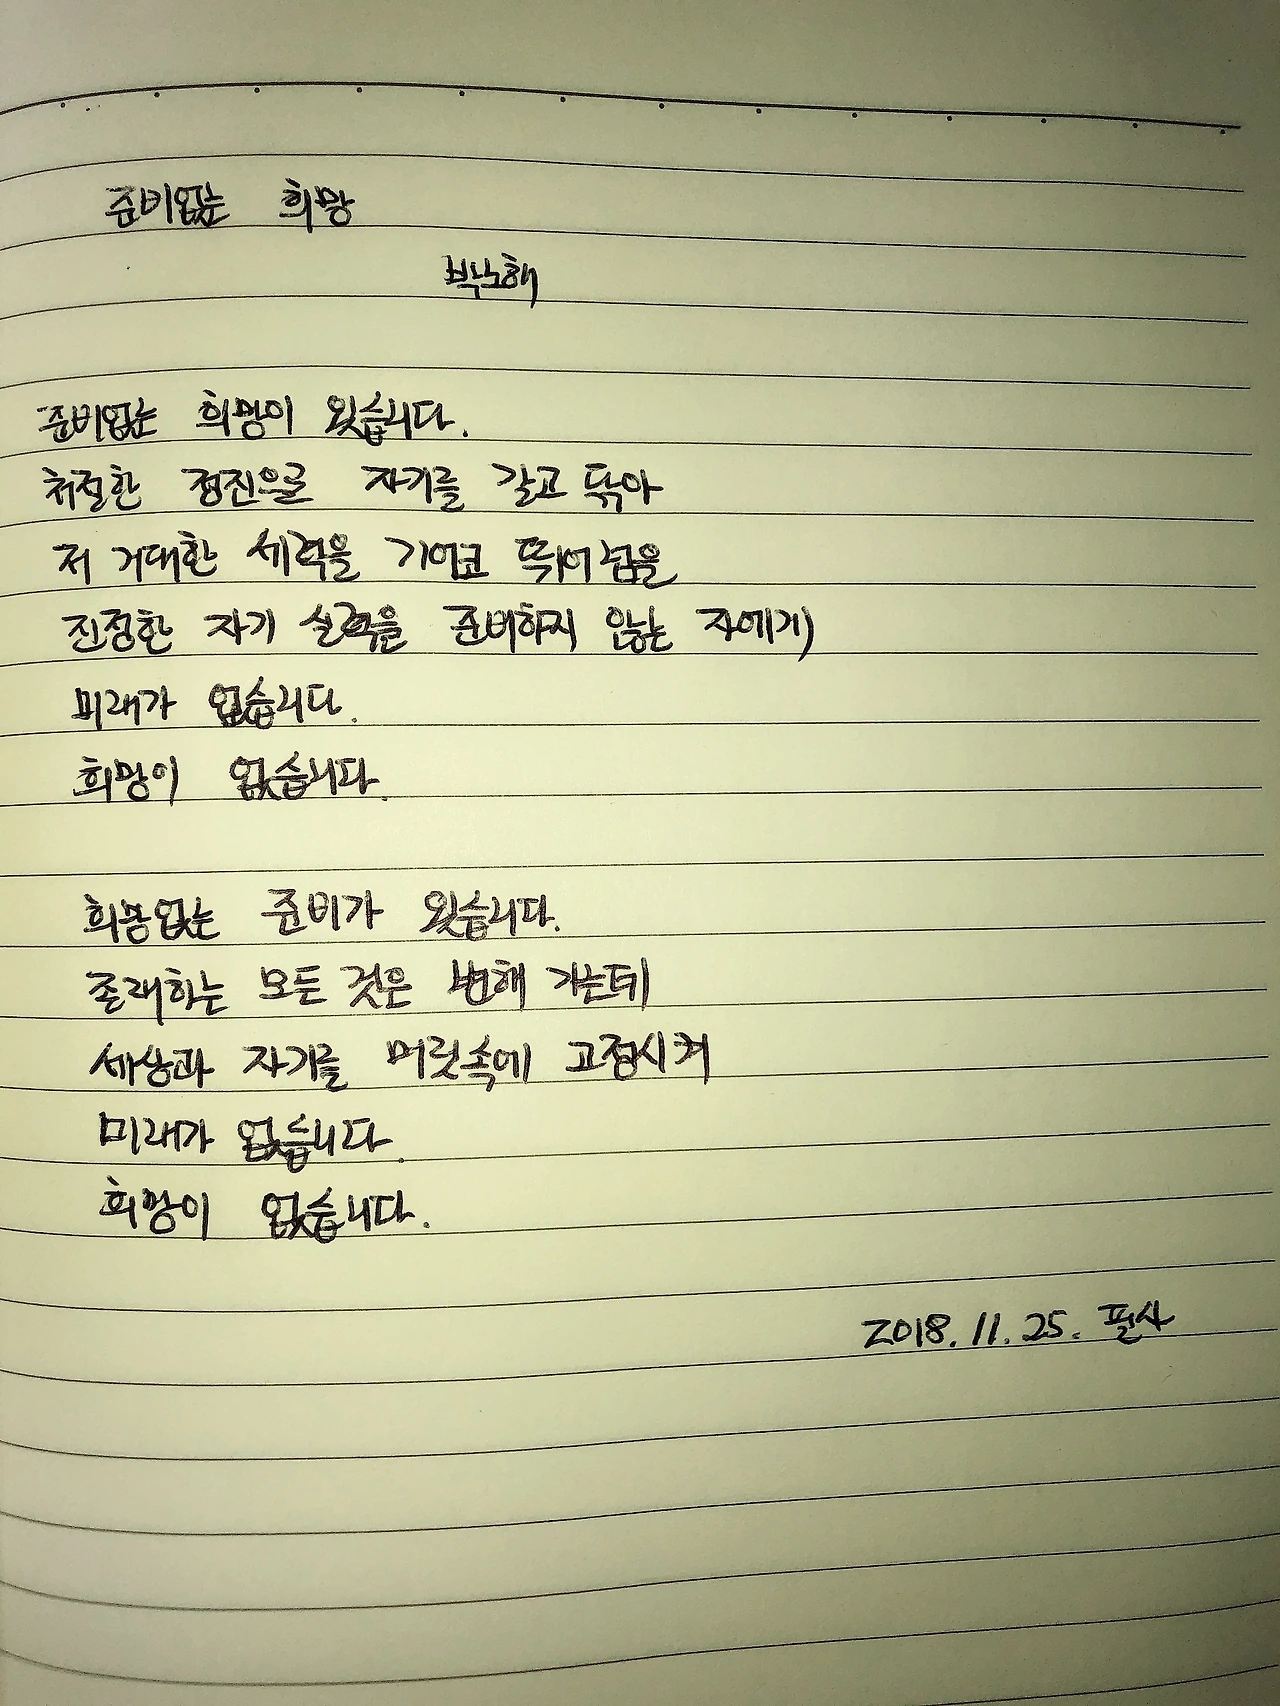 준비없는 희망
박노해
준비없는 희망이 있습니다.
처절한 정진으로 자기를 갈고 닦아
저 거대한 세력을 기어코 뛰어넘을
진정한 자기 실력을 준비하지 않는 자에게
미래가 없습니다.
희망이 없습니다.
희망없는 준비가 있습니다.
존재하는 모든 것은 변해 가는데
세상과 자기를 머릿속에 고정시켜
미래가 없습니다.
희망이 없습니다.
2018. 11. 25. 필사